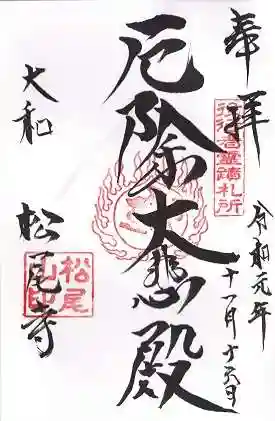 奉拝
令和元年
十一月十六日
厄除大悲殿
大和
松尾寺
松尾山印